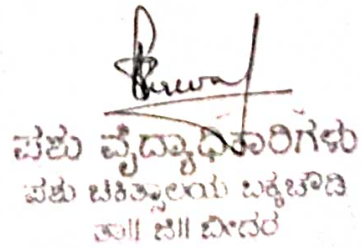 ಪಶು ವೈದ್ಯಾಧಿಕಾರಿಗಳು
ಪಶು ಚಿಕಿತ್ಸಾಲಯ ಬಕ್ಕಚೌಡಿ
ತಾ|| ಜಿ|| ಬೀದರ